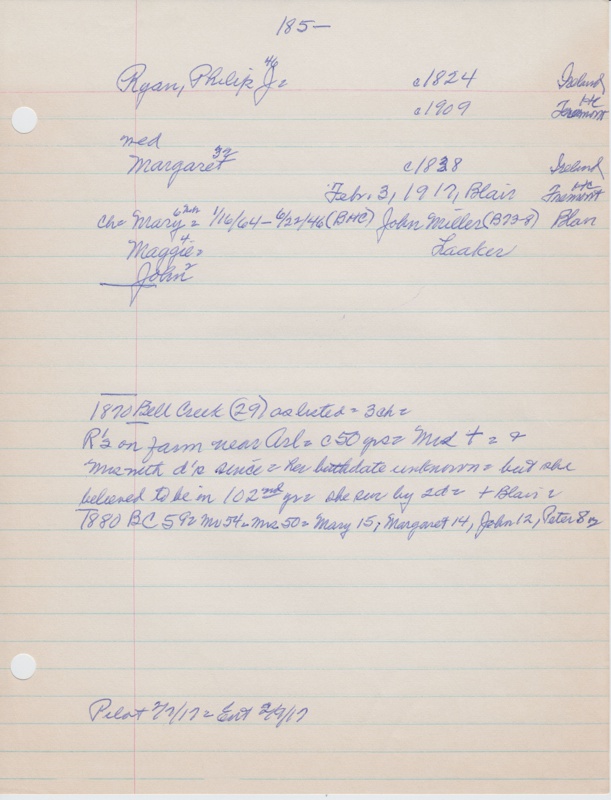 185-
Ryan, Philip J= 46 c1824 Ireland
c1909 HC Fremont
med
Margaret 32 c1838 Ireland
Febr. 3, 1917, Blair HC Fremont
ch= Mary 6 = 1/16/64- 6/22/46 (BHC) John Miller (B738) Blair
Maggie 4 = Laaker
John 2
1870 Bell Creek (29) as listed = 3ch=
R's on farm near Arl = c50 yrs= Mrd + = &
Mrs with d's since = her birthdate unknown = but she
believed to be in 102nd yr= she sur by 2d= + Blair=
1880 BC 59= Mr 54= Mrs 50= Mary 15, Margaret 14, John 12, Peter 8
Pilot 2/7/17= Ent 2/9/17